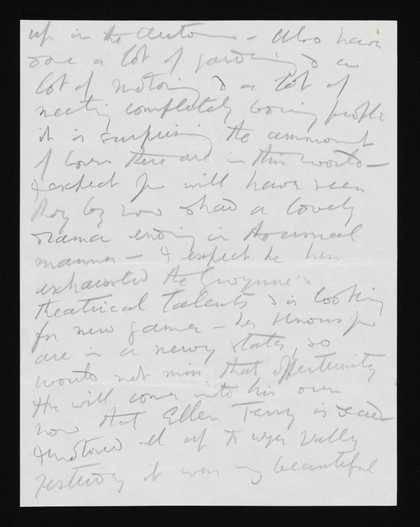 up in the Autumn - Also have
done a lot of gardening & a
lot of motoring & a lot of
meeting completely boring people
it is surprising the ammount
of bores there are in this world -
I expect you will have seen
Roy by now & had a lovely
drama ending in the usual
manner - I expect he has
exhausted the Gwynne's
theatrical talents & is looking
for new game - he knows you
are in a newy state, so
would not miss that oppertunity
He will come into his own
now that Ellen Terry is dead
I motored all up the Wye Valley
Yesterday it was very beautiful